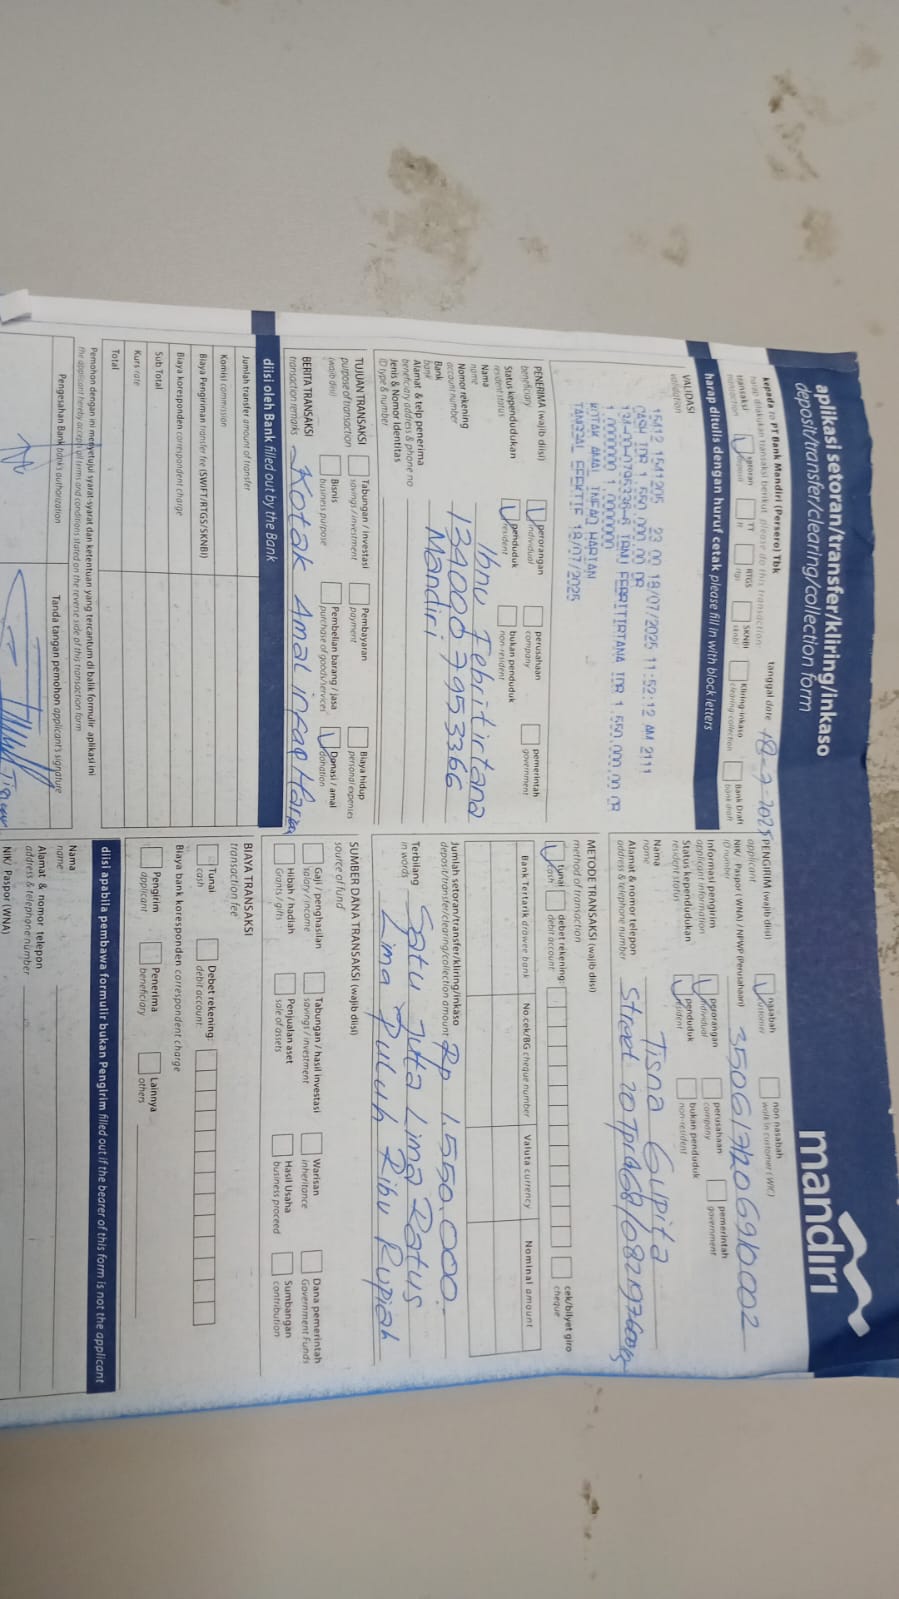 aplikasi setoran/transfer/kliring/inkaso
deposit/transfer/clearing/collection form
mandiri
kepada to PT Bank Mandiri (Persero) Tbk
tanggal date 18-7-2025
harap dilakukan transaksi berikut please do this transaction:
transaksi transaction
setoran deposit
TT tt
RTGS rtgs
SKNBI sknbi
Kliring-inkaso clearing-collection
Bank Draft bank draft
harap ditulis dengan huruf cetak please fill in with block letters
VALIDASI
validation
15412 1541205 23 00 18/07/2025 11:52:12 AM 2111
CASH IDR 1.550.000.00 DR
IDR 1.550.000.00 CR
1.0000000 1.0000000
KOTAK AMAL INFAQ HARIAN
TANGGAL EFEKTIF 18/07/2025
PENERIMA (wajib diisi)
beneficiary
perorangan individual
perusahaan company
pemerintah government
Status kependudukan
resident status
penduduk resident
bukan penduduk non-resident
Nama Ibnu Febritirtana
name
Nomor rekening
account number
Bank Mandiri
bank
Alamat & telp penerima
beneficiary address & phone no
Jenis & Nomor Identitas
ID type & number
TUJUAN TRANSAKSI
purpose of transaction
(wajib diisi)
Tabungan / investasi savings / investment
Pembayaran payment
Biaya hidup personal expenses
Bisnis business purpose
Pembelian barang / jasa purchase of goods/services
Donasi / amal donation
BERITA TRANSAKSI Kotak Amal infaq Harian
transaction remarks
diisi oleh Bank filled out by the Bank
Jumlah transfer amount of transfer
Komisi commission
Biaya Pengiriman transfer fee (SWIFT/RTGS/SKNBI)
Biaya koresponden correspondent charge
Sub Total
Kurs rate
Total
Pemohon dengan ini menyetujui syarat-syarat dan ketentuan yang tercantum di balik formulir aplikasi ini
the applicant hereby accept all terms and conditions stated on the reverse side of this transaction form
Pengesahan Bank bank's authorization
Tanda tangan pemohon applicant's signature
PENGIRIM (wajib diisi)
applicant
nasabah customer
non nasabah walk in customer (WIC)
NIK/ Paspor (WNA) / NPWP (Perusahaan)
ID number
Informasi pengirim
applicant information
perorangan individual
perusahaan company
pemerintah government
Status kependudukan
resident status
penduduk resident
bukan penduduk non-resident
Nama Tisna Gupita
name
Alamat & nomor telepon
address & telephone number
METODE TRANSAKSI (wajib diisi)
method of transaction
tunai cash
debet rekening: debit account:
cek/bilyet giro cheque
Bank Tertarik drawee bank
No.cek/BG cheque number
Valuta currency
Nominal amount
Jumlah setoran/transfer/kliring/inkaso Rp 1.550.000.
deposit/transfer/clearing/collection amount
Terbilang Satu Juta Lima Ratus
in words
Lima Puluh Ribu Rupiah
SUMBER DANA TRANSAKSI (wajib diisi)
source of fund
Gaji / penghasilan salary / income
Tabungan / hasil investasi savings / investment
Warisan inheritance
Dana pemerintah Government Funds
Hibah / hadiah Grants / gifts
Penjualan aset sale of assets
Hasil Usaha business proceed
Sumbangan contribution
BIAYA TRANSAKSI
transaction fee
Tunai cash
Debet rekening: debit account:
Biaya bank koresponden correspondent charge
Pengirim applicant
Penerima beneficiary
Lainnya others
diisi apabila pembawa formulir bukan Pengirim filled out if the bearer of this form is not the applicant
Nama
name
Alamat & nomor telepon
address & telephone number
NIK/ Paspor (WNA)